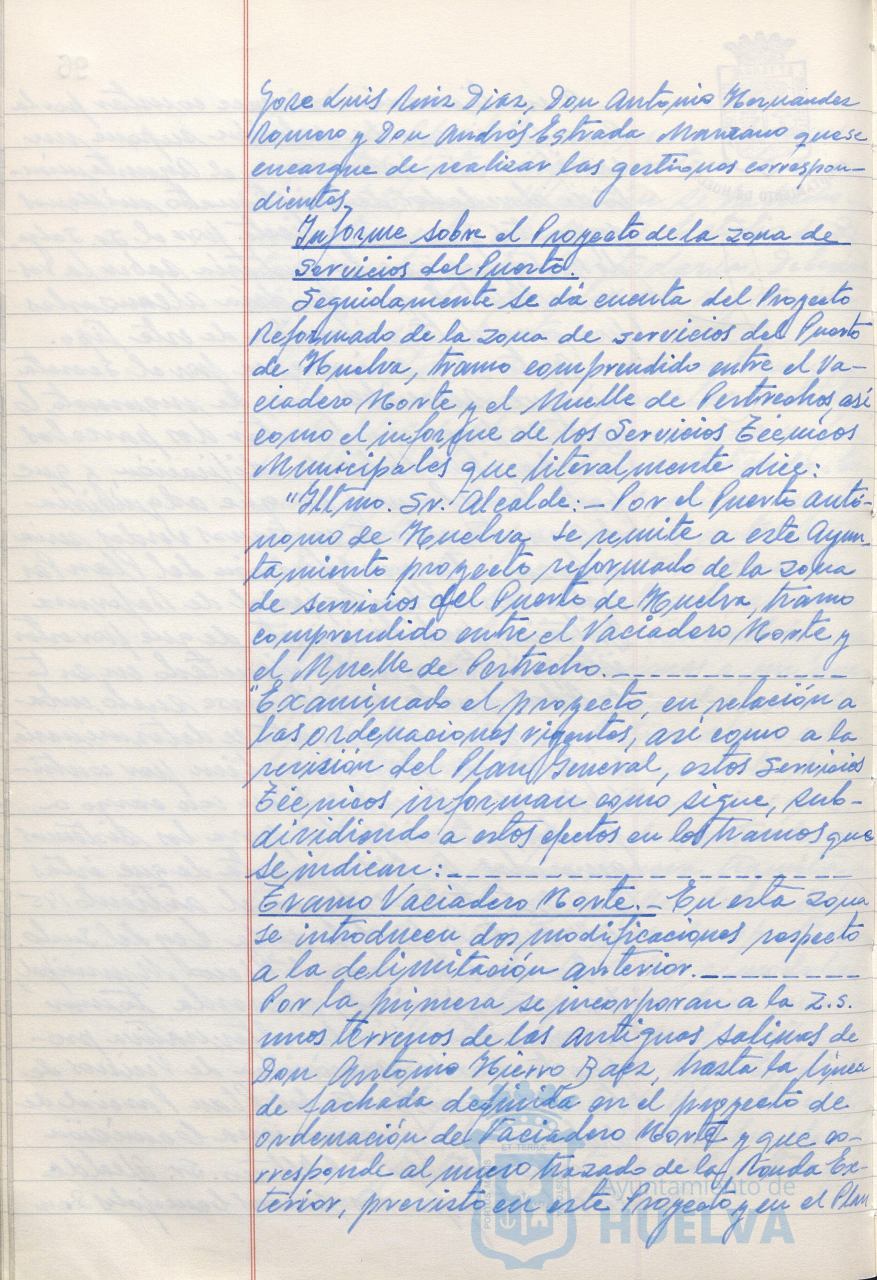 Jose Luis Ruiz Diaz, Don Antonio Hernandez
Romero y Don Andrés Estrada Manzano que se
encargue de realizar las gestiones correspon-
dientes.
Informe sobre el Proyecto de la zona de
Servicios del Puerto.
Seguidamente se dá cuenta del Proyecto
Reformado de la zona de servicios del Puerto
de Huelva, tramo comprendido entre el Va-
ciadero Norte y el Muelle de Pertrechos, así
como el informe de los Servicios Técnicos
Municipales que literalmente dice:
"Iltmo. Sr. Alcalde: - Por el Puerto Autó-
nomo de Huelva se remite a este Ayun-
tamiento proyecto reformado de la zona
de servicios del Puerto de Huelva, tramo
comprendido entre el Vaciadero Norte y
el Muelle de Pertrecho.
"Examinado el proyecto, en relación a
las ordenaciones vigentes, así como a la
revisión del Plan General, estos Servicios
Técnicos informan como sigue, sub-
dividiendo a estos efectos en los tramos que
se indican:
Tramo Vaciadero Norte. - En esta zona
se introducen dos modificaciones respecto
a la delimitación anterior.
Por la primera se incorporan a la Z.S.
unos terrenos de las antiguas salinas de
Don Antonio Hierro Baez, hasta la línea
de fachada definida en el proyecto de
ordenación de Vaciadero Norte y que co-
rresponde al nuevo trazado de la Ronda Ex-
terior, previsto en este Proyecto y en el Plan
Ayuntamiento de
HUELVA